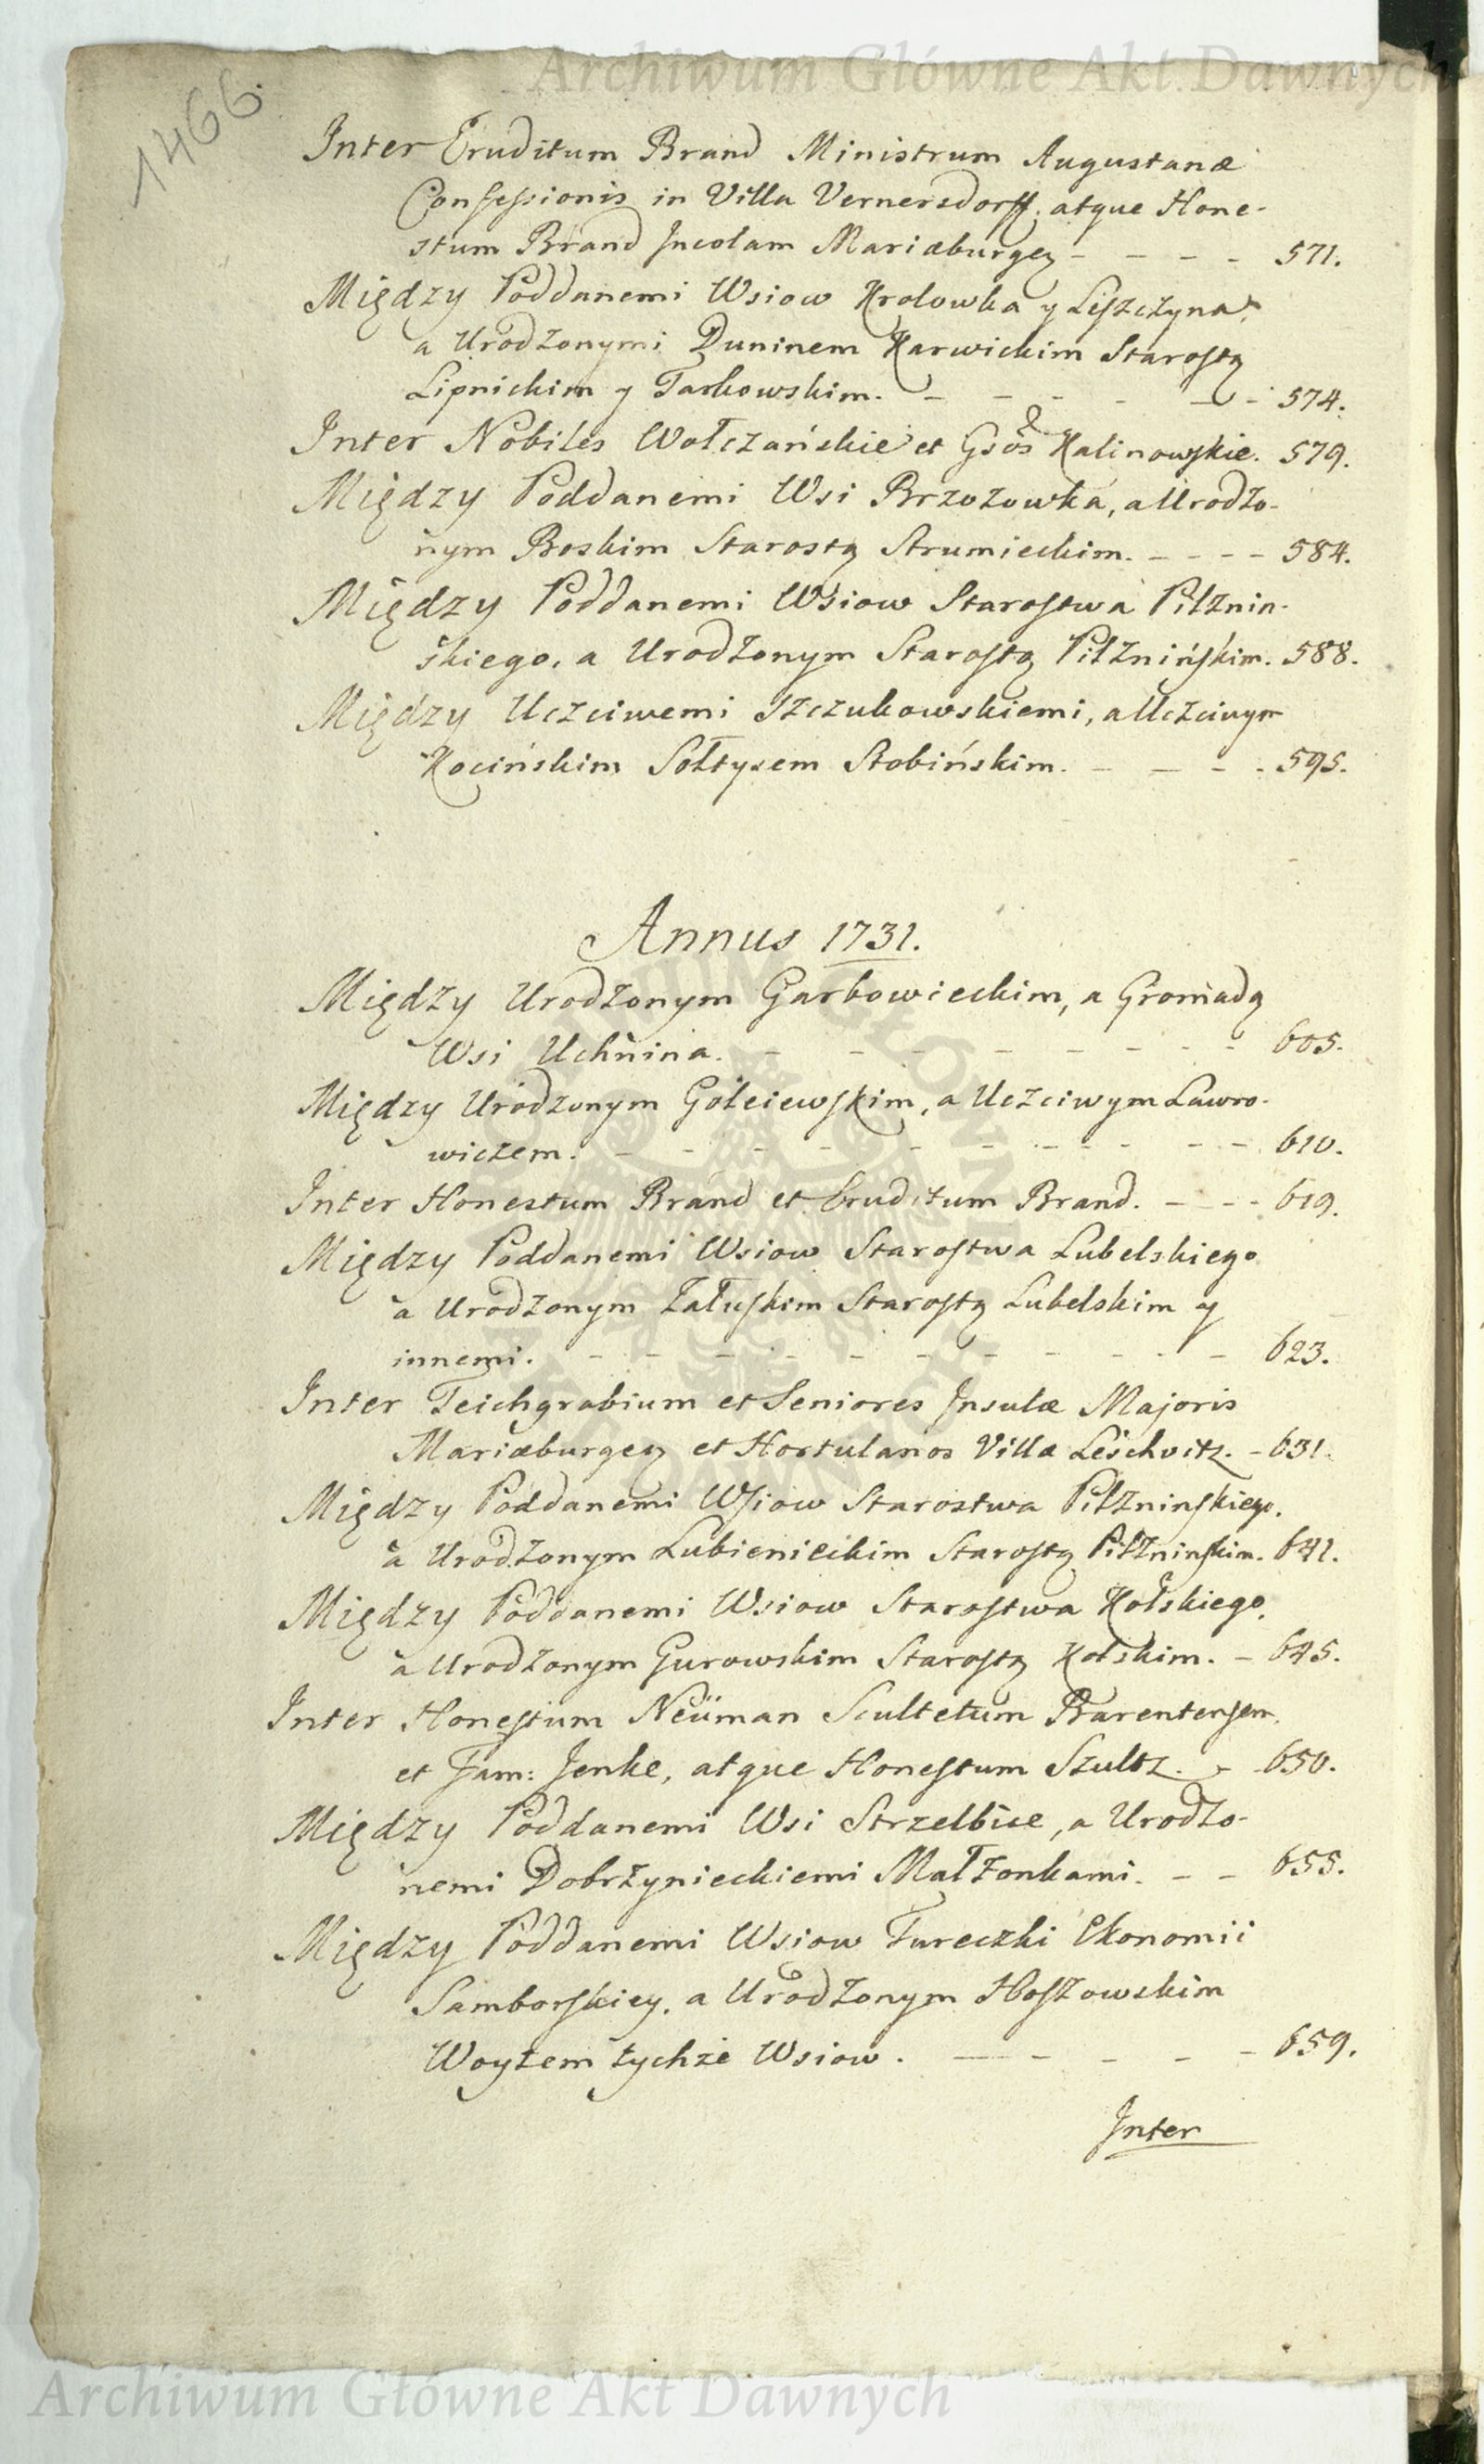 Archiwum Główne Akt Dawnych
1466.
Inter Eruditum Brand Ministrum Augustanæ
Confessionis in Villa Vernersdorff. atque Hone-
stum Brand Incolam Mariæburgen - - - - 571.
Między Poddanemi Wsiow Krolowka y Leszczyna,
a Urodzonymi Duninem Karwickim Starostą
Lipnickim y Tarkowskim. - - - - - - 574.
Inter Nobiles Wołczańskie et Gsos Kalinowskie. 579.
Między Poddanemi Wsi Brzozowka, a Urodzo-
nym Boskim Starostą Strumieckim. - - - - 584.
Między Poddanemi Wsiow Starostwa Pilznin-
skiego, a Urodzonym Starostą Pilznińskim. 588.
Między Uczciwemi Szczukowskiemi, a Uczciwym
Kocińskim Sołtysem Stobińskim. - - - - 595.
Annus 1731.
Między Urodzonym Garbowieckim, a Gromadą
Wsi Uchnina. - - - - - - - - 605.
Między Urodzonym Goleiewskim, a Uczciwym Lawro-
wiczem. - - - - - - - - - - 610.
Inter Honestum Brand et Eruditum Brand. - - - - 619.
Między Poddanemi Wsiow Starostwa Lubelskiego
a Urodzonym Załuskim Starostą Lubelskim y
innemi. - - - - - - - - - - 623.
Inter Teichgrabium et Seniores Insulæ Majoris
Mariæburgen et Hortulanos Villæ Leschvitz. - 631.
Między Poddanemi Wsiow Starostwa Pilzninskiego,
a Urodzonym Lubienieckim Starostą Pilzninskim. 641.
Między Poddanemi Wsiow Starostwa Kolskiego,
a Urodzonym Gurowskim Starostą Kolskim. - 645.
Inter Honestum Neüman Scultetum Barentensem
et Fam: Jenke, atque Honestum Szultz. - 650.
Między Poddanemi Wsi Strzelbice, a Urodzo-
nemi Dobrzynieckiemi Małżonkami. - - 655.
Między Poddanemi Wsiow Tureczki Ekonomii
Samborskiey, a Urodzonym Hoszowskim
Woytem tychże Wsiow. - - - - - 659.
Inter
Archiwum Główne Akt Dawnych